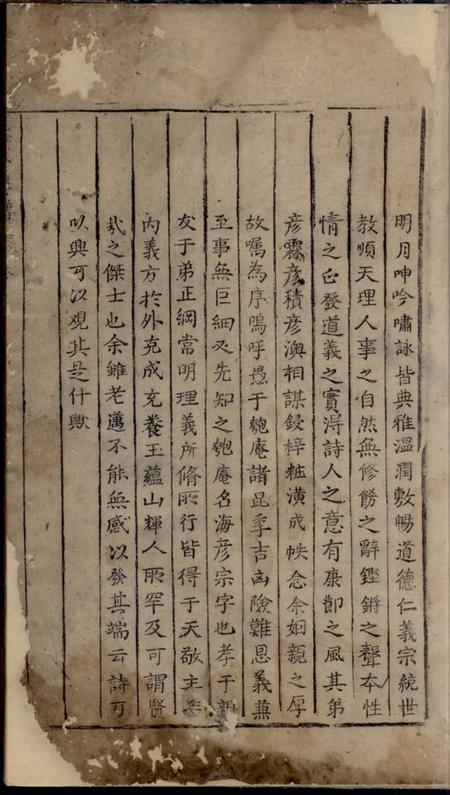 明月呻吟嘯詠皆典雅溫潤敷暢道德仁義宗統世
教順天理人事之自然無修餙之辭鏗鏘之聲本性
情之正發道義之實淂詩人之意有康節之風其弟
彥霖彥積彥澳相謀鋟梓粧潢成帙念余姻親之厚
故嘱為序嗚呼愚于匏庵諸昆季吉凶險難恩義兼
至事無巨細必先知之匏庵名海彥宗字也孝于親
友于弟正綱常明理義所脩所行皆得于天敬主
內義方於外克成充養玉蘊山輝人所罕及可謂賢
哉之傑士也余雖老邁不能無感以發其端云詩可
以興可以观其是什歟